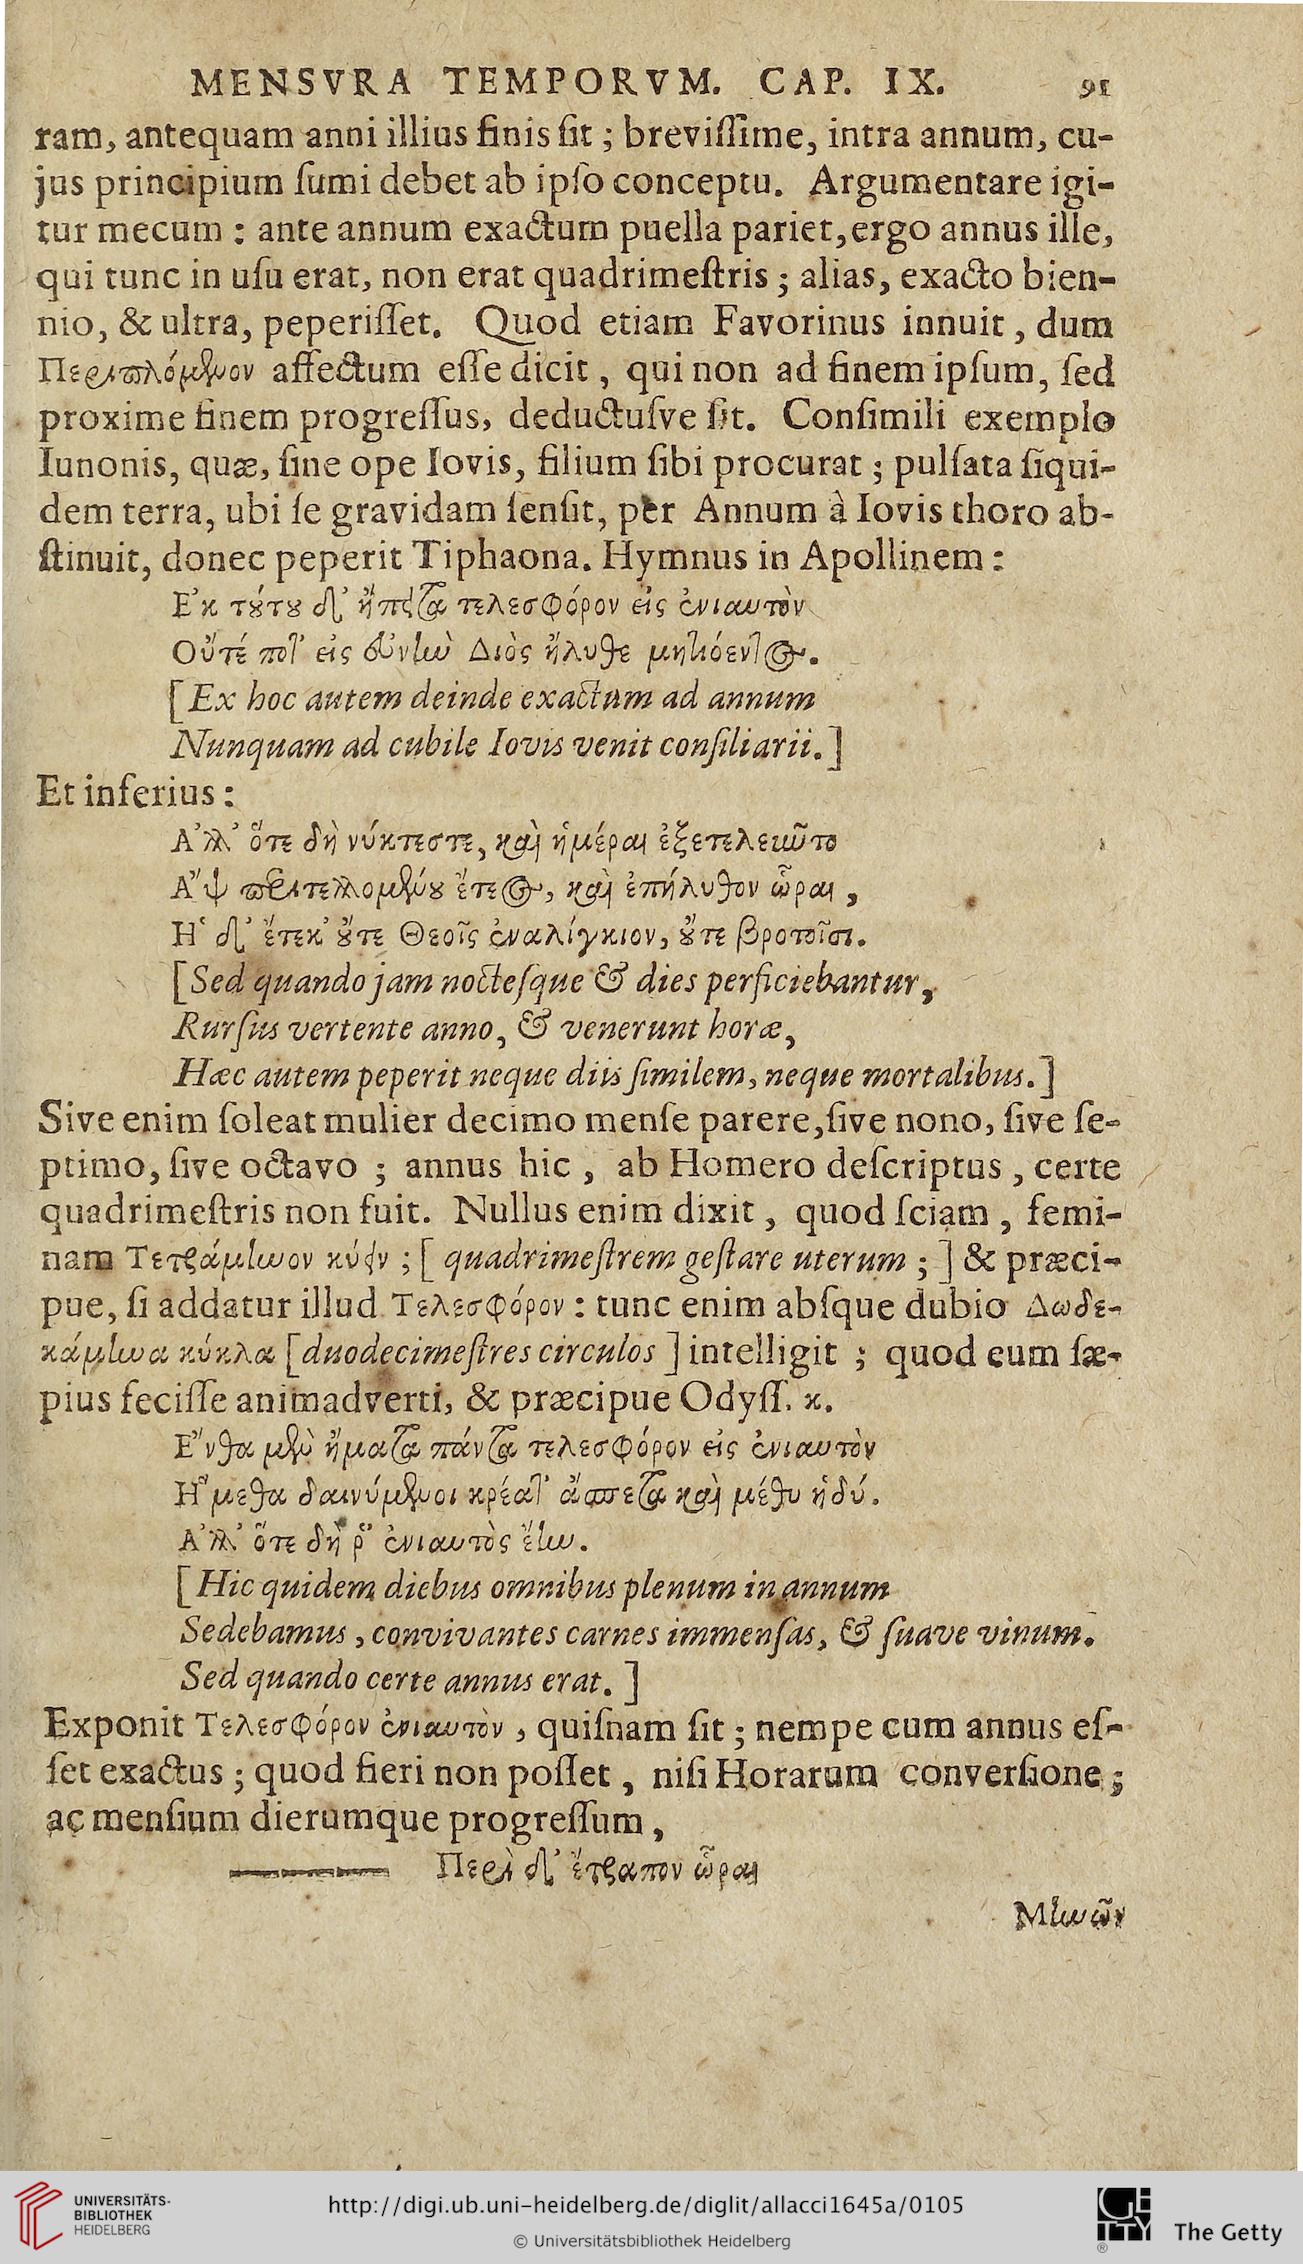 MENSVRA TEMPORVM. CAP. IX. 91
ram, antequam anni illius finis sit; brevissime, intra annum, cu-
jus principium sumi debet ab ipso conceptu. Argumentare igi-
tur mecum: ante annum exactum puella pariet, ergo annus ille,
qui tunc in usu erat, non erat quadrimestris; alias, exacto bien-
nio, & ultra, peperisset. Quod etiam Favorinus innuit, dum
Περιπλόμενον affectum esse dicit, qui non ad finem ipsum, sed
proxime finem progressus, deductusve sit. Consimili exemplo
Iunonis, quæ, sine ope Iovis, filium sibi procurat; pulsata siqui-
dem terra, ubi se gravidam sensit, per Annum â Iovis thoro ab-
stinuit, donec peperit Tiphaona. Hymnus in Apollinem:
Ε'κ τούτου δ' ἤπειτα τελεσφόρον εἰς ἐνιαυτὸν
Οὔτέ ποτ' εἰς εὐνὴν Διὸς ἤλυθε μητιόεντος.
[Ex hoc autem deinde exactum ad annum
Nunquam ad cubile Iovis venit consiliarii.]
Et inferius:
Α'λλ' ὅτε δὴ νύκτεστε, καὶ ἡμέραι ἐξετελειῶτο
Α"ψ περιτελλομένου ἔτεος, καὶ ἐπήλυθον ὧραι,
Η' δ' ἔτεκ' οὔτε Θεοῖς ἐναλίγκιον, οὔτε βροτοῖσι.
[Sed quando jam noctesque & dies perficiebantur,
Rursus vertente anno, & venerunt horæ,
Hæc autem peperit neque diis similem, neque mortalibus.]
Sive enim soleat mulier decimo mense parere, sive nono, sive se-
ptimo, sive octavo; annus hic, ab Homero descriptus, certe
quadrimestris non fuit. Nullus enim dixit, quod sciam, femi-
nam Τετράμηνον κύειν; [quadrimestrem gestare uterum;] & præci-
pue, si addatur illud Τελεσφόρον: tunc enim absque dubio Δωδε-
κάμηνα κύκλα [duodecimestres circulos] intelligit; quod eum sæ-
pius fecisse animadverti, & præcipue Odyss. κ.
Ε"νθα μὲν ἤματα πάντα τελεσφόρον εἰς ἐνιαυτὸν
Η"μεθα δαινύμενοι κρέατ' ἄσπετα καὶ μέθυ ἡδύ.
Α'λλ' ὅτε δή ῥ' ἐνιαυτὸς ἔην.
[Hic quidem diebus omnibus plenum in annum
Sedebamus, convivantes carnes immensas, & suave vinum.
Sed quando certe annus erat.]
Exponit Τελεσφόρον ἐνιαυτὸν, quisnam sit; nempe cum annus es-
set exactus; quod fieri non posset, nisi Horarum conversione;
ac mensium dierumque progressum,
——— Περὶ δ' ἔτραπον ὧραι
Μηνῶν
UNIVERSITÄTS-
BIBLIOTHEK
HEIDELBERG
http://digi.ub.uni-heidelberg.de/diglit/allacci1645a/0105
© Universitätsbibliothek Heidelberg
GETTY
The Getty